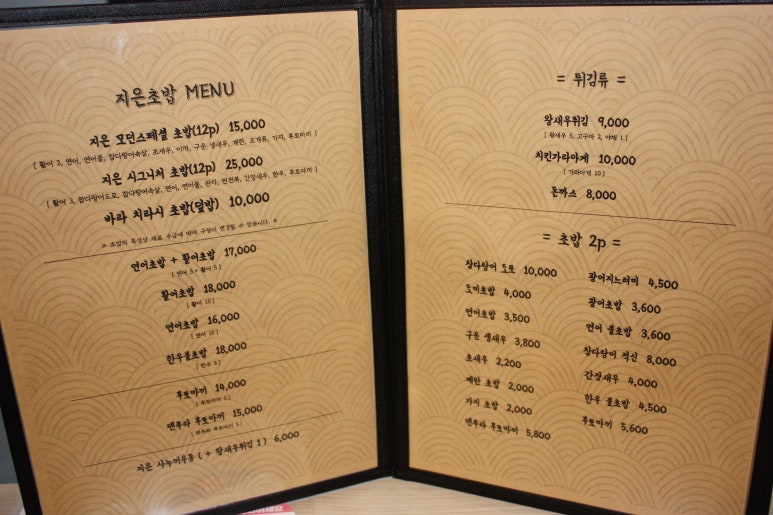 지은초밥 MENU
지은 모던스페셜 초밥(12p) 15,000
[ 활어 2, 연어, 연어롤, 참다랑어속살, 초새우, 이까, 구운 생새우, 계란, 조개류, 가지, 후토마끼 ]
지은 시그니처 초밥(12p) 25,000
[ 활어 3, 참다랑어도로, 참다랑어속살, 연어, 연어롤, 관자, 찐전복, 간장새우, 한우, 후토마끼 ]
바라 치라시 초밥(덮밥) 10,000
※ 초밥의 특성상 재료 수급에 따라 구성이 변경될 수 있습니다. ※
연어초밥 + 활어초밥 17,000
[ 연어 5 + 활어 5 ]
활어초밥 18,000
[ 활어 10 ]
연어초밥 16,000
[ 연어 10 ]
한우불초밥 18,000
[ 한우 8 ]
후토마끼 14,000
[ 후토마끼 5 ]
덴푸라 후토마끼 15,000
[ 덴푸라 후토마끼 5 ]
지은 사누끼우동 ( + 왕새우튀김 1 ) 6,000
= 튀김류 =
왕새우튀김 9,000
[ 왕새우 5, 고구마 2, 야채 1 ]
치킨가라아게 10,000
[ 가라아게 10 ]
돈까스 8,000
= 초밥 2p =
참다랑어 도로 10,000
도미초밥 4,000
연어초밥 3,500
구운 생새우 3,800
초새우 2,200
계란 초밥 2,000
가지 초밥 2,000
덴푸라 후토마끼 5,800
광어지느러미 4,500
광어초밥 3,600
연어 불초밥 3,600
참다랑어 적신 8,000
간장새우 4,000
한우 불초밥 4,500
후토마끼 5,600